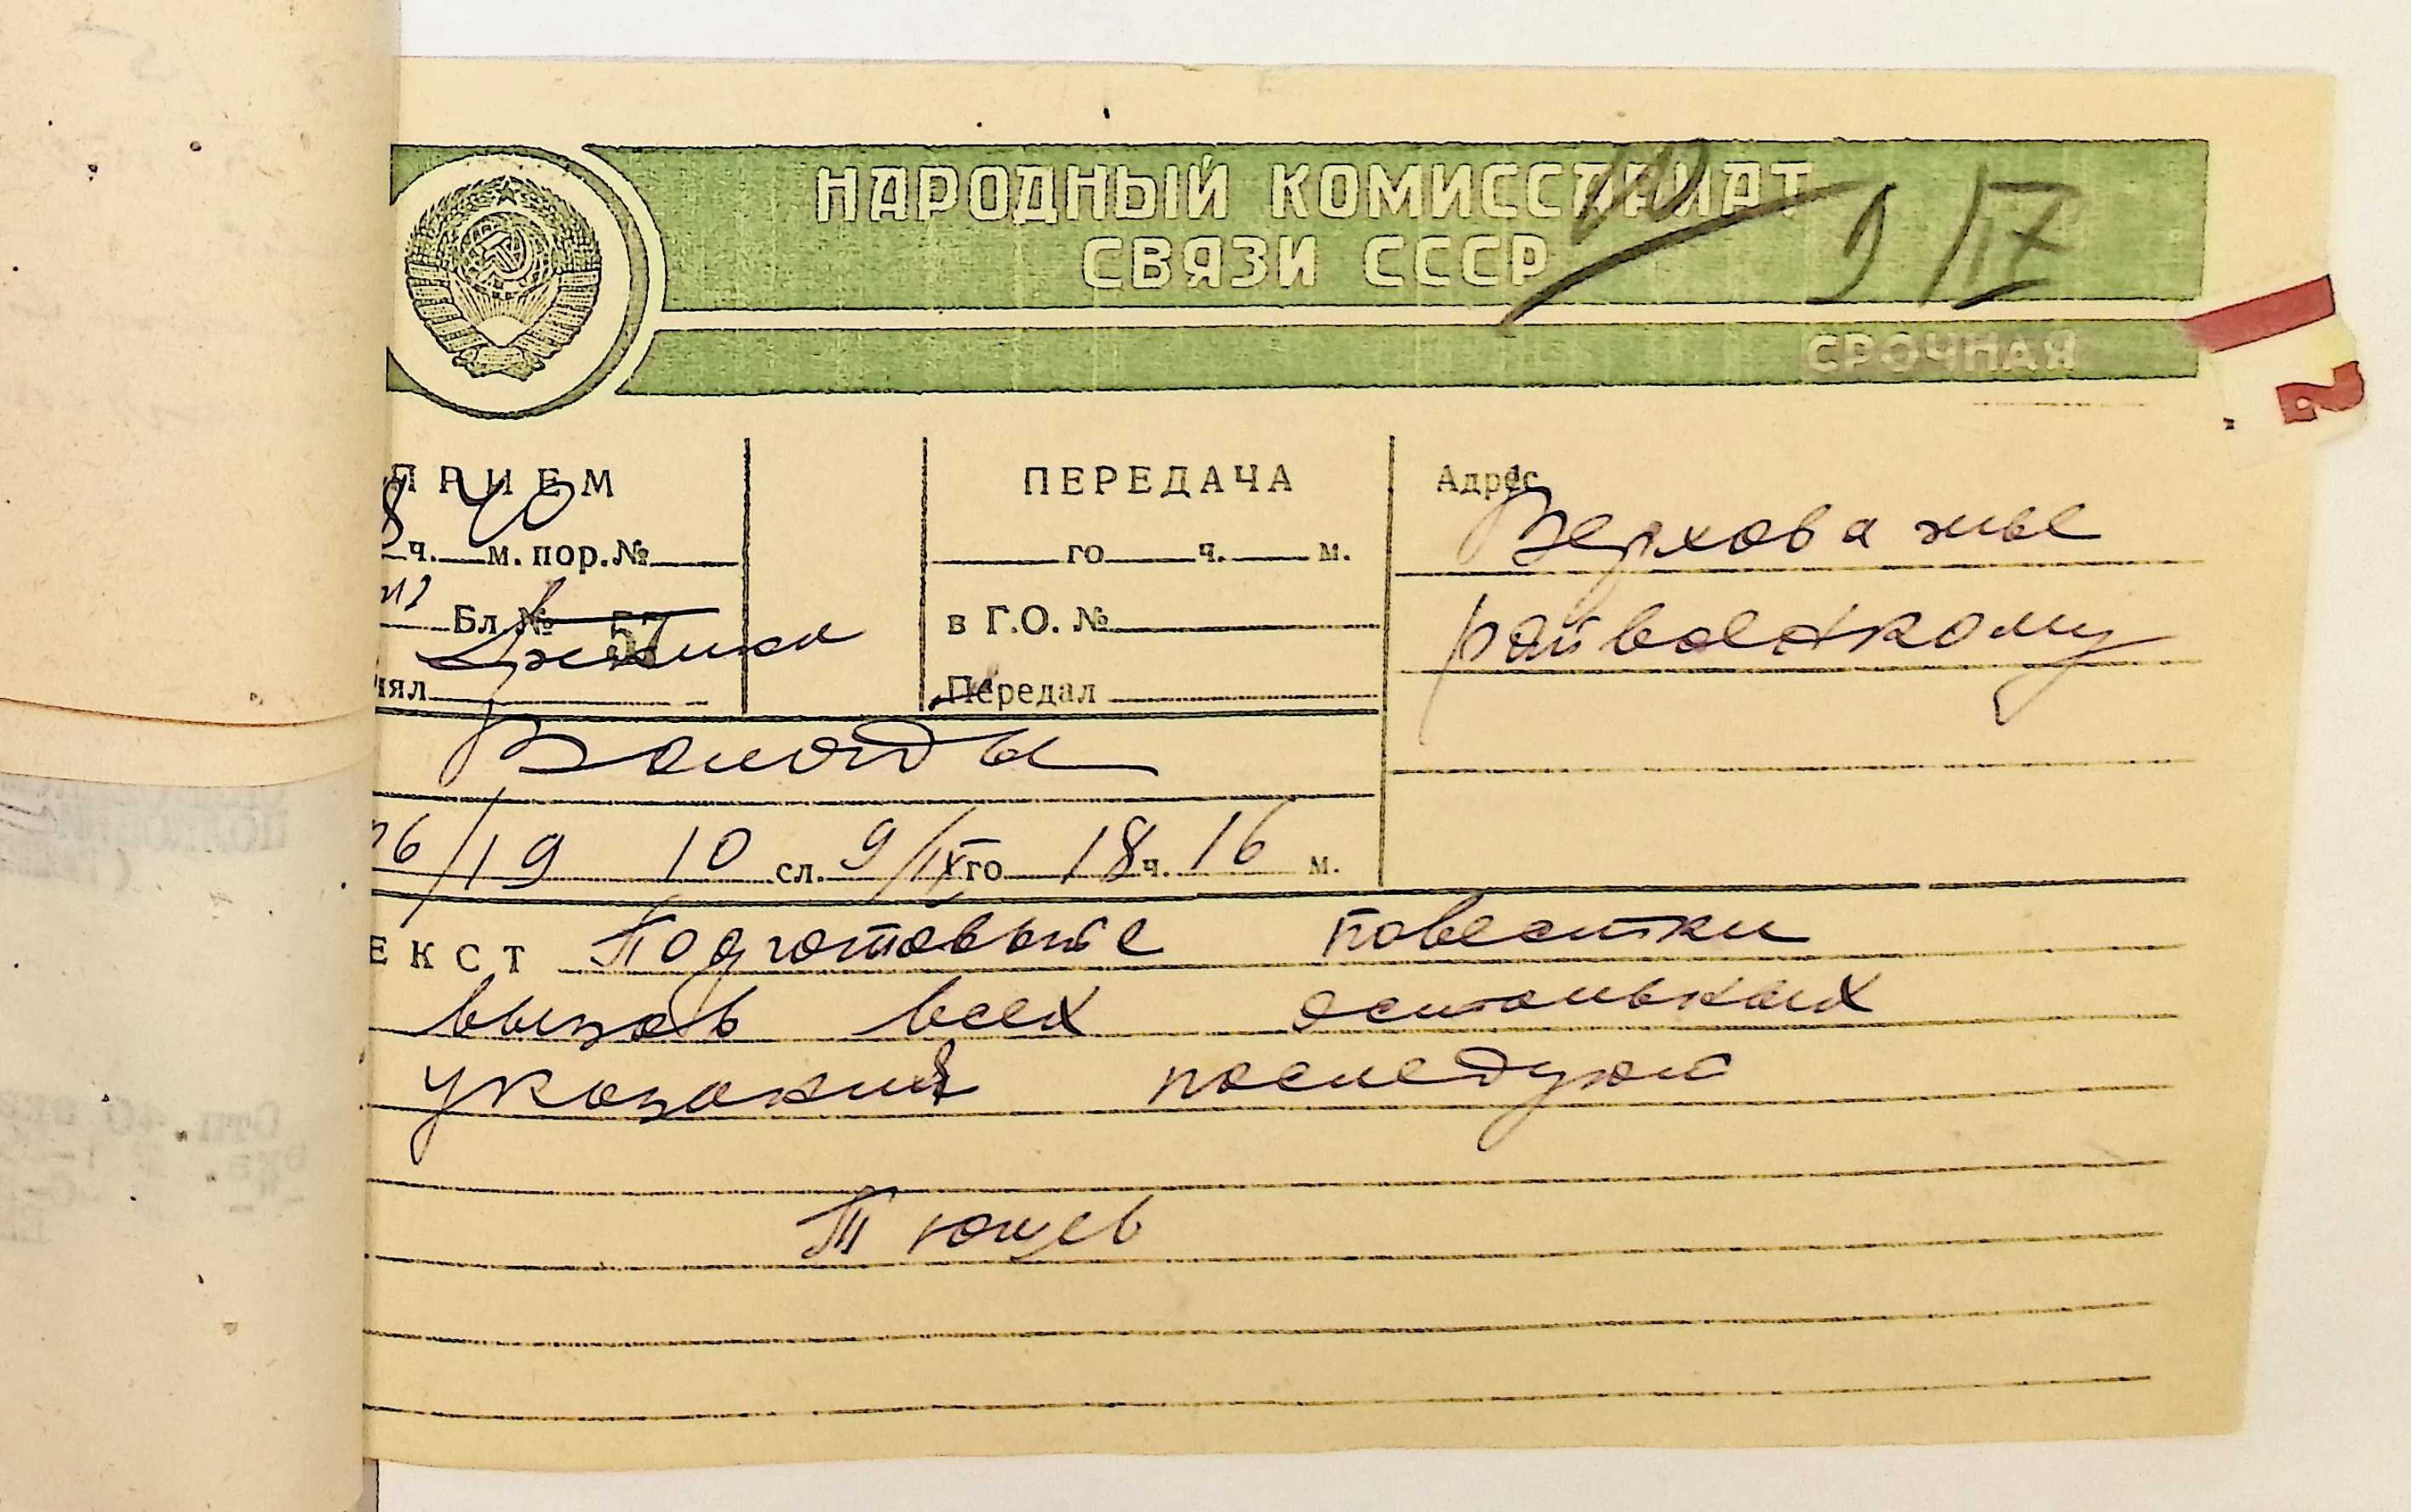 НАРОДНЫЙ КОМИССАРИАТ
СВЯЗИ СССР
9/IX
СРОЧНАЯ
ПРИЕМ
8 40
ч. м. пор. №
Бл. № 57
нял
ПЕРЕДАЧА
го ч. м.
в Г.О. №
Передал
Адрес
Верховажье
райвоенкому
Вологды
16/19 10 сл. 9/IX го 18 ч. 16 м.
ЕКСТ Подготовьте повестки
вызов всех остальных
указания последуют
Тюшев
2